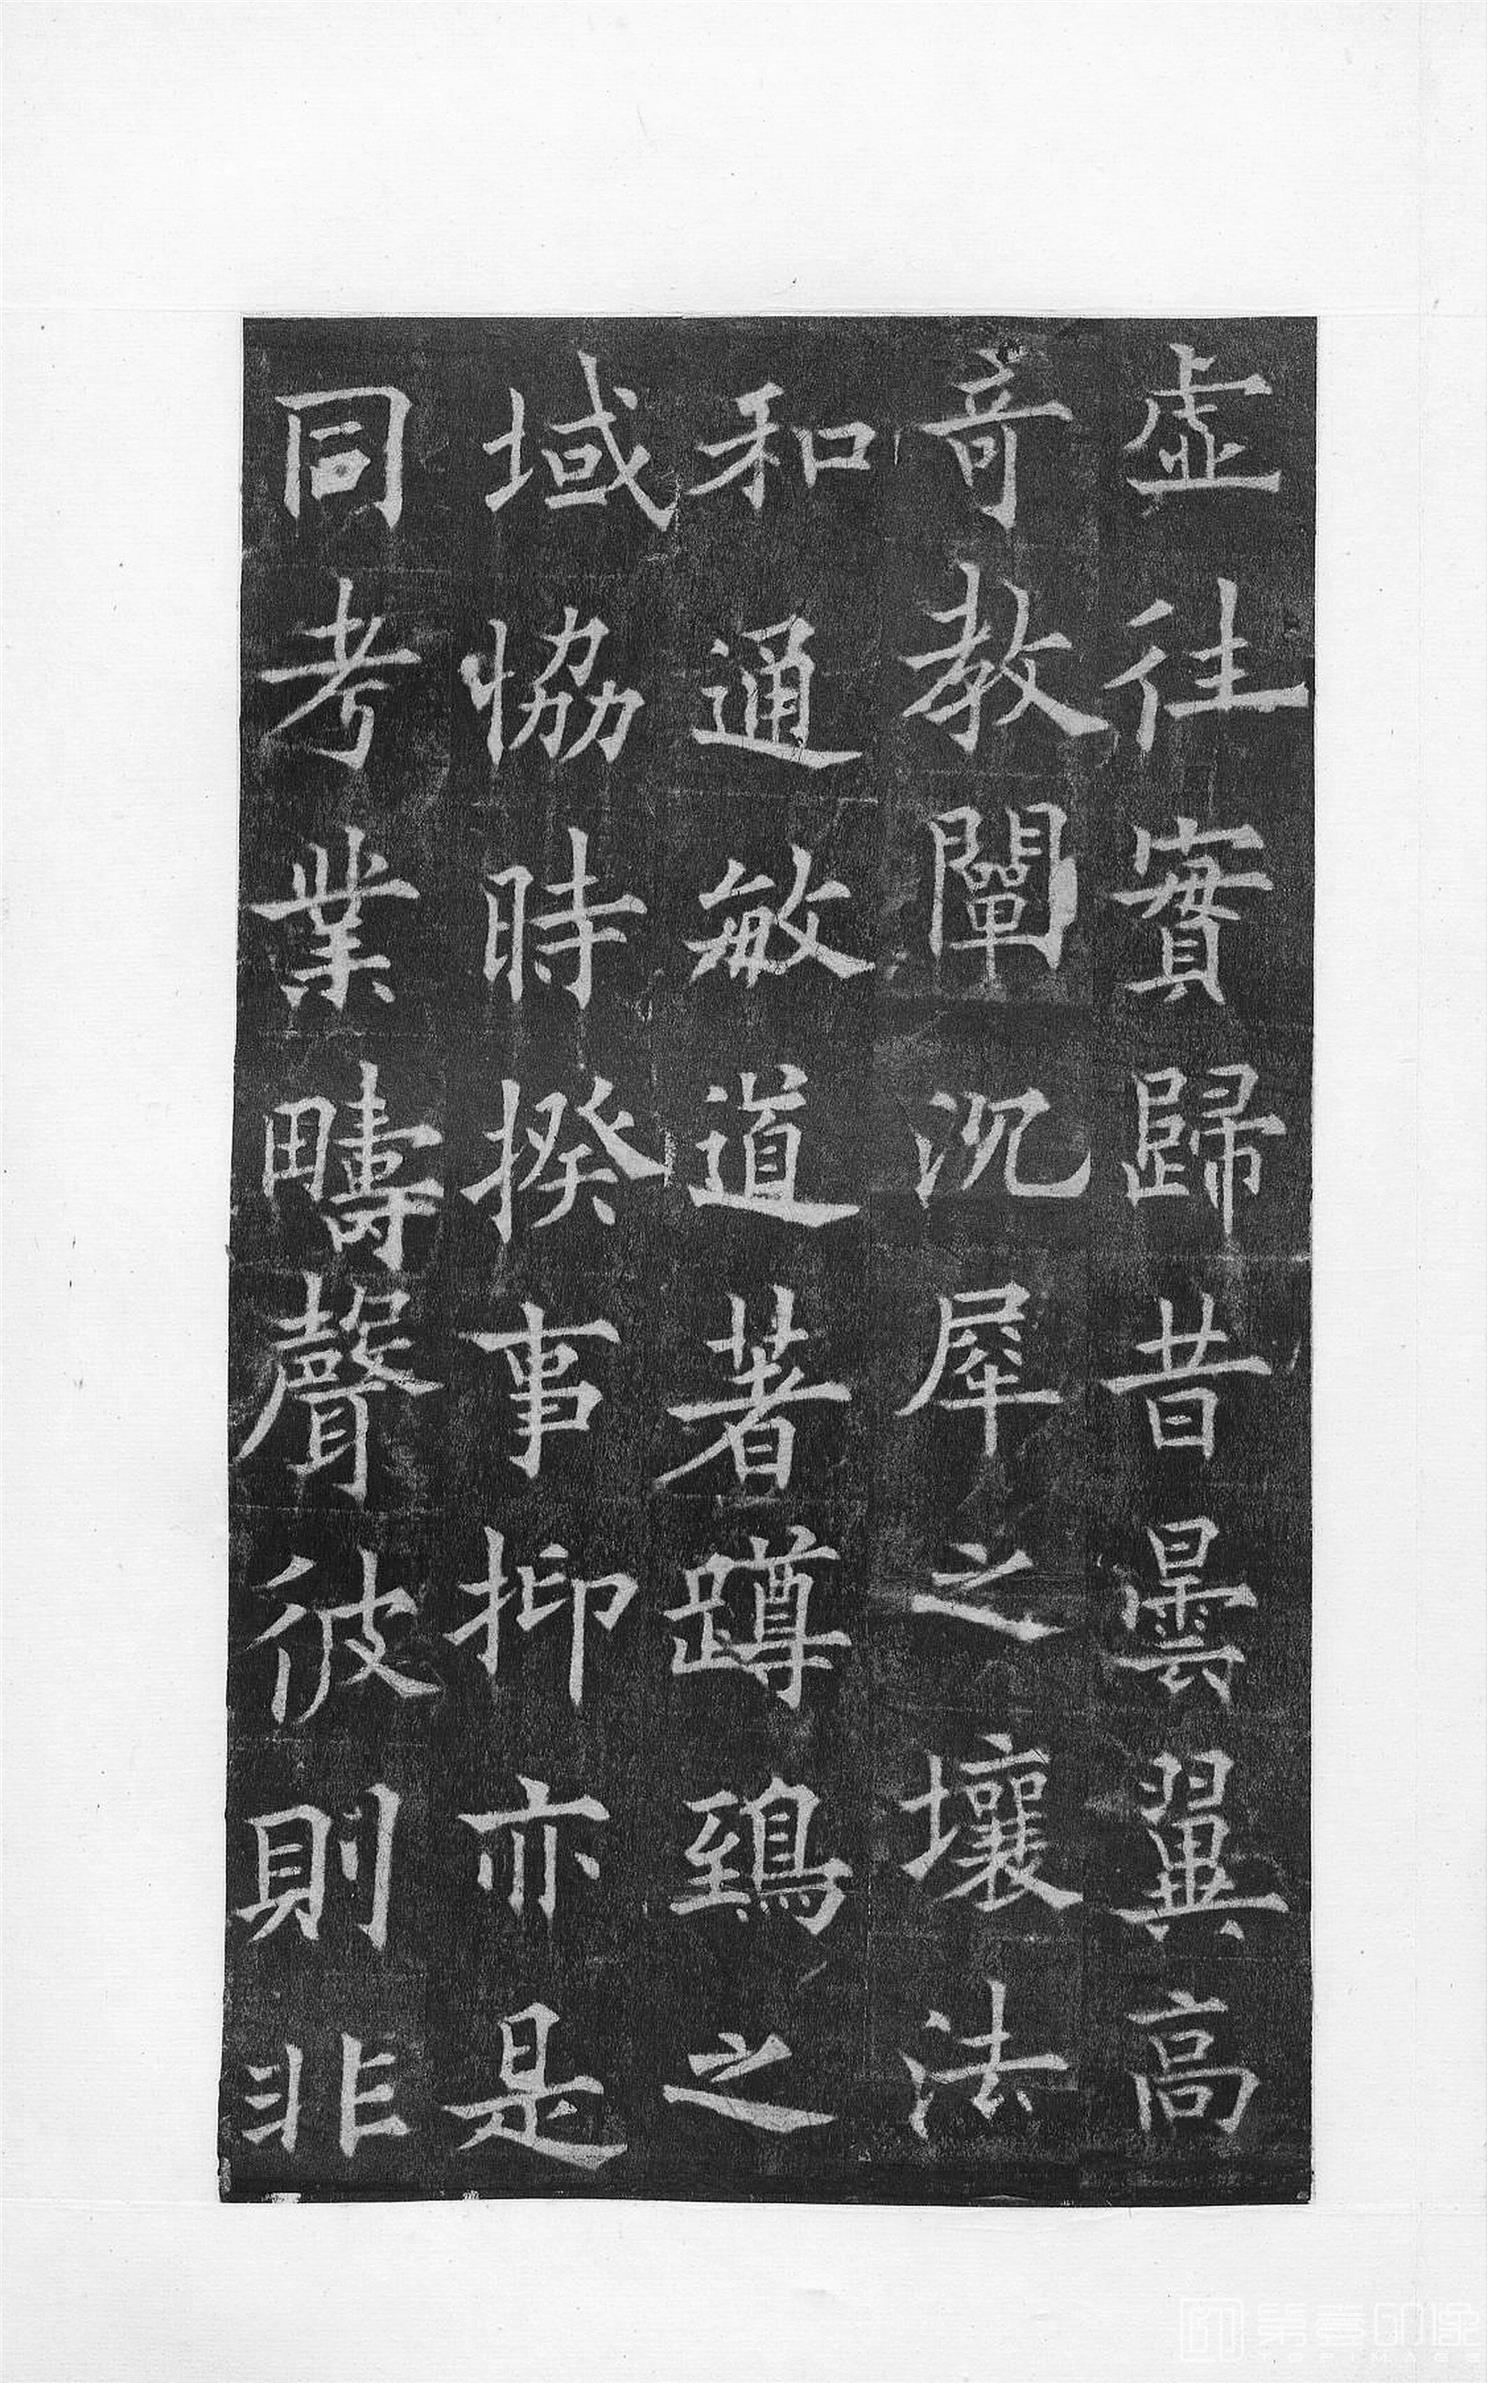 虛往實歸昔曇翼高
奇教闡沉犀之壤法
和通敏道著蹲鵄之
域恊時揆事抑亦是
同考業疇聲彼則非